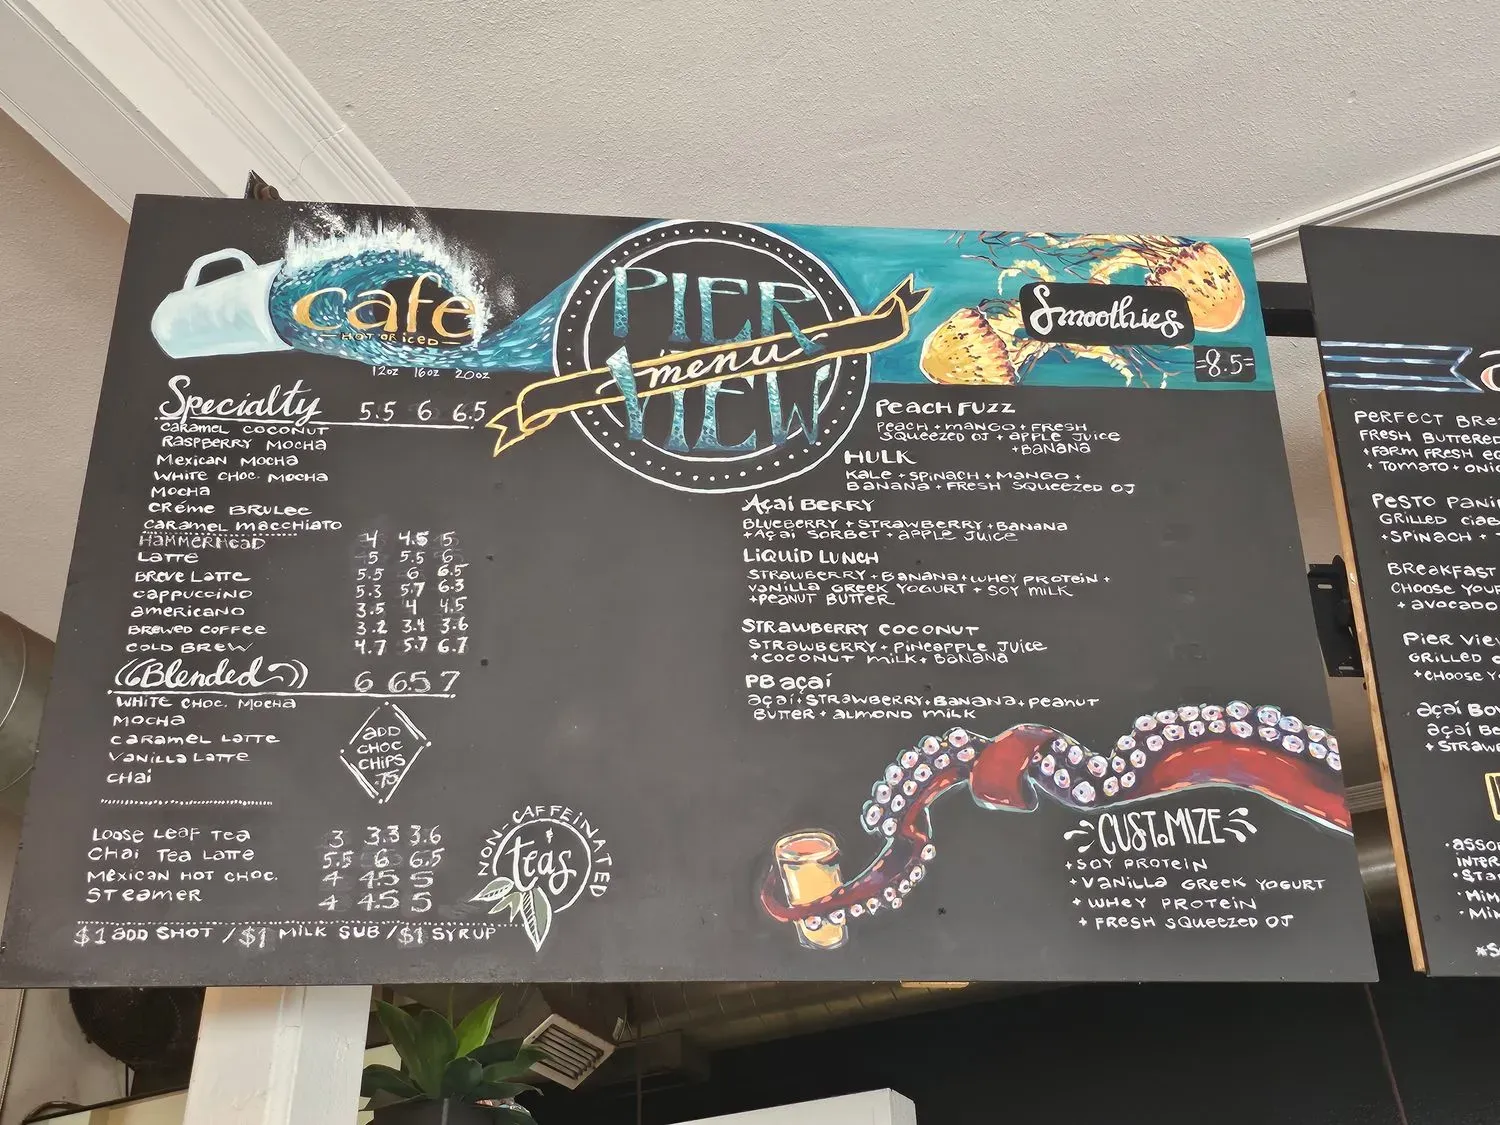 cafe
HOT OR ICED
12oz 16oz 20oz
Specialty 5.5 6 6.5
CARAMEL COCONUT
RASPBERRY MOCHA
MEXICAN MOCHA
WHITE CHOC. MOCHA
MOCHA
CRÉME BRULEE
CARAMEL MACCHIATO
HAMMERHEAD 4 4.5 5
LATTE 5 5.5 6
BREVE LATTE 5.5 6 6.5
CAPPUCCINO 5.3 5.7 6.3
AMERICANO 3.5 4 4.5
BREWED COFFEE 3.2 3.4 3.6
COLD BREW 4.7 5.7 6.7
Blended 6 6.5 7
WHITE CHOC. MOCHA
MOCHA
CARAMEL LATTE
VANILLA LATTE
CHAI
ADD
CHOC
CHIPS
.75
LOOSE LEAF TEA 3 3.3 3.6
CHAI TEA LATTE 5.5 6 6.5
MEXICAN HOT CHOC. 4 4.5 5
STEAMER 4 4.5 5
NON-CAFFEINATED
+
teas
$1 ADD SHOT / $1 MILK SUB / $1 SYRUP
PIER
menu
VIEW
Smoothies
-8.5-
PEACH FUZZ
PEACH + MANGO + FRESH
SQUEEZED OJ + APPLE JUICE
+BANANA
HULK
KALE + SPINACH + MANGO +
BANANA + FRESH SQUEEZED OJ
AÇAI BERRY
BLUEBERRY + STRAWBERRY + BANANA
+AÇAI SORBET + APPLE JUICE
LIQUID LUNCH
STRAWBERRY + BANANA + WHEY PROTEIN +
VANILLA GREEK YOGURT + SOY MILK
+PEANUT BUTTER
STRAWBERRY COCONUT
STRAWBERRY + PINEAPPLE JUICE
+COCONUT MILK + BANANA
PB AÇAÍ
AÇAI + STRAWBERRY + BANANA + PEANUT
BUTTER + ALMOND MILK
CUSTOMIZE
+SOY PROTEIN
+VANILLA GREEK YOGURT
+ WHEY PROTEIN
+ FRESH SQUEEZED OJ
PERFECT
FRESH BUTTERED
+FARM FRESH
+ TOMATO +
PESTO
GRILLED
+SPINACH +
BREAKFAST
CHOOSE YOUR
+ AVOCADO
PIER
GRILLED
+CHOOSE
AÇAÍ
AÇAÍ
+